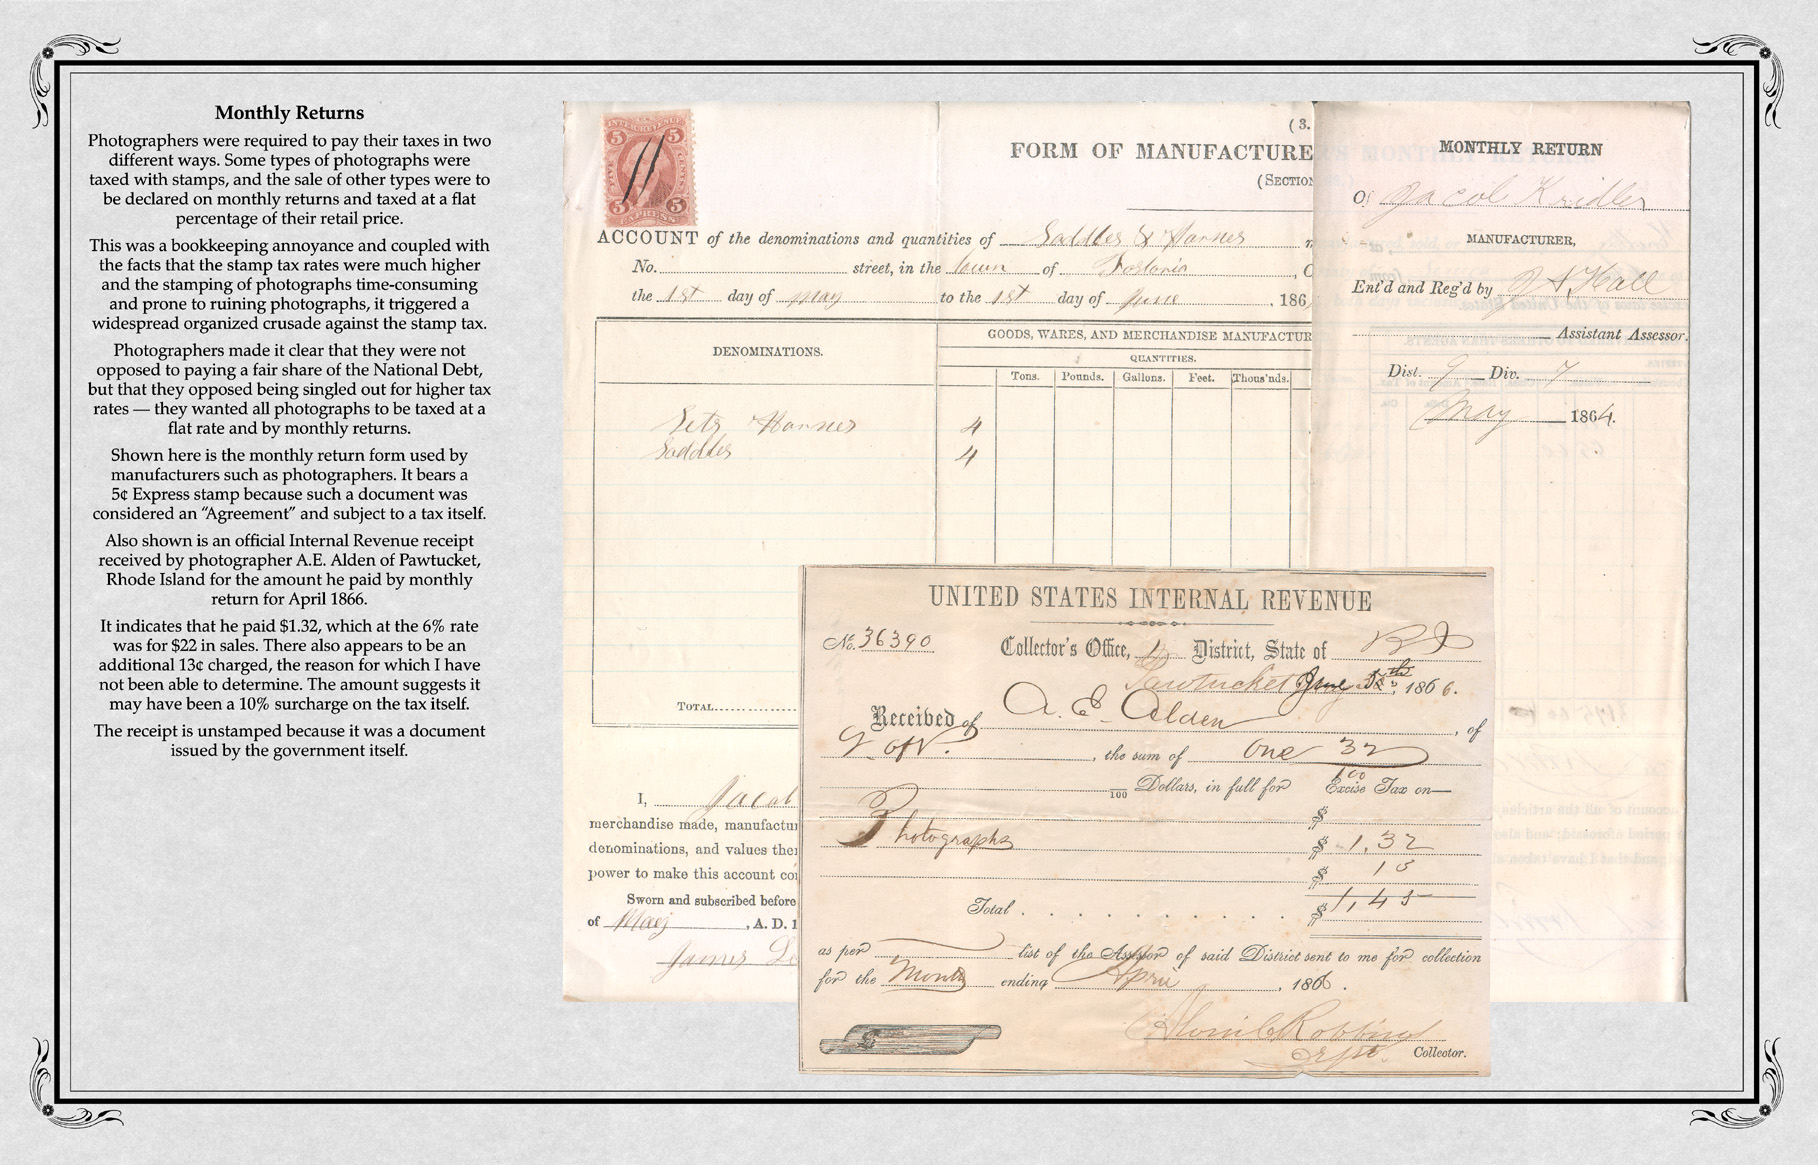 Monthly Returns
Photographers were required to pay their taxes in two
different ways. Some types of photographs were
taxed with stamps, and the sale of other types were to
be declared on monthly returns and taxed at a flat
percentage of their retail price.
This was a bookkeeping annoyance and coupled with
the facts that the stamp tax rates were much higher
and the stamping of photographs time-consuming
and prone to ruining photographs, it triggered a
widespread organized crusade against the stamp tax.
Photographers made it clear that they were not
opposed to paying a fair share of the National Debt,
but that they opposed being singled out for higher tax
rates — they wanted all photographs to be taxed at a
flat rate and by monthly returns.
Shown here is the monthly return form used by
manufacturers such as photographers. It bears a
5¢ Express stamp because such a document was
considered an “Agreement” and subject to a tax itself.
Also shown is an official Internal Revenue receipt
received by photographer A.E. Alden of Pawtucket,
Rhode Island for the amount he paid by monthly
return for April 1866.
It indicates that he paid $1.32, which at the 6% rate
was for $22 in sales. There also appears to be an
additional 13¢ charged, the reason for which I have
not been able to determine. The amount suggests it
may have been a 10% surcharge on the tax itself.
The receipt is unstamped because it was a document
issued by the government itself.
INTER. REVENUE
5 5
FIVE CENTS
5 5
EXPRESS
(3.
FORM OF MANUFACTURE
(SECTION
ACCOUNT of the denominations and quantities of Saddles & Harness
No. street, in the town of Fostoria, O
the 1st day of May to the 1st day of June, 186
DENOMINATIONS.
GOODS, WARES, AND MERCHANDISE MANUFACTUR
QUANTITIES.
Tons. Pounds. Gallons. Feet. Thous'nds.
Sets Harness 4
Saddles 4
TOTAL
I, Jacob
merchandise made, manufactu
denominations, and values the
power to make this account co
Sworn and subscribed before
of May, A. D. 1
James
MONTHLY RETURN
Of Jacob Kridler
MANUFACTURER,
Ent'd and Reg'd by J. S. Hall
Assistant Assessor.
Dist. 9 Div. 7
May 1864.
UNITED STATES INTERNAL REVENUE
No. 36390
Collector's Office, 1 District, State of R I
Pawtucket June 5th, 1866.
Received of A. E. Alden, of
, the sum of One 32
100
/100 Dollars, in full for Excise Tax on
$
Photographs $ 1,32
$ 13
Total $ 1,45
as per list of the Assessor of said District sent to me for collection
for the Month ending April, 1866.
Robbins
Dept. Collector.